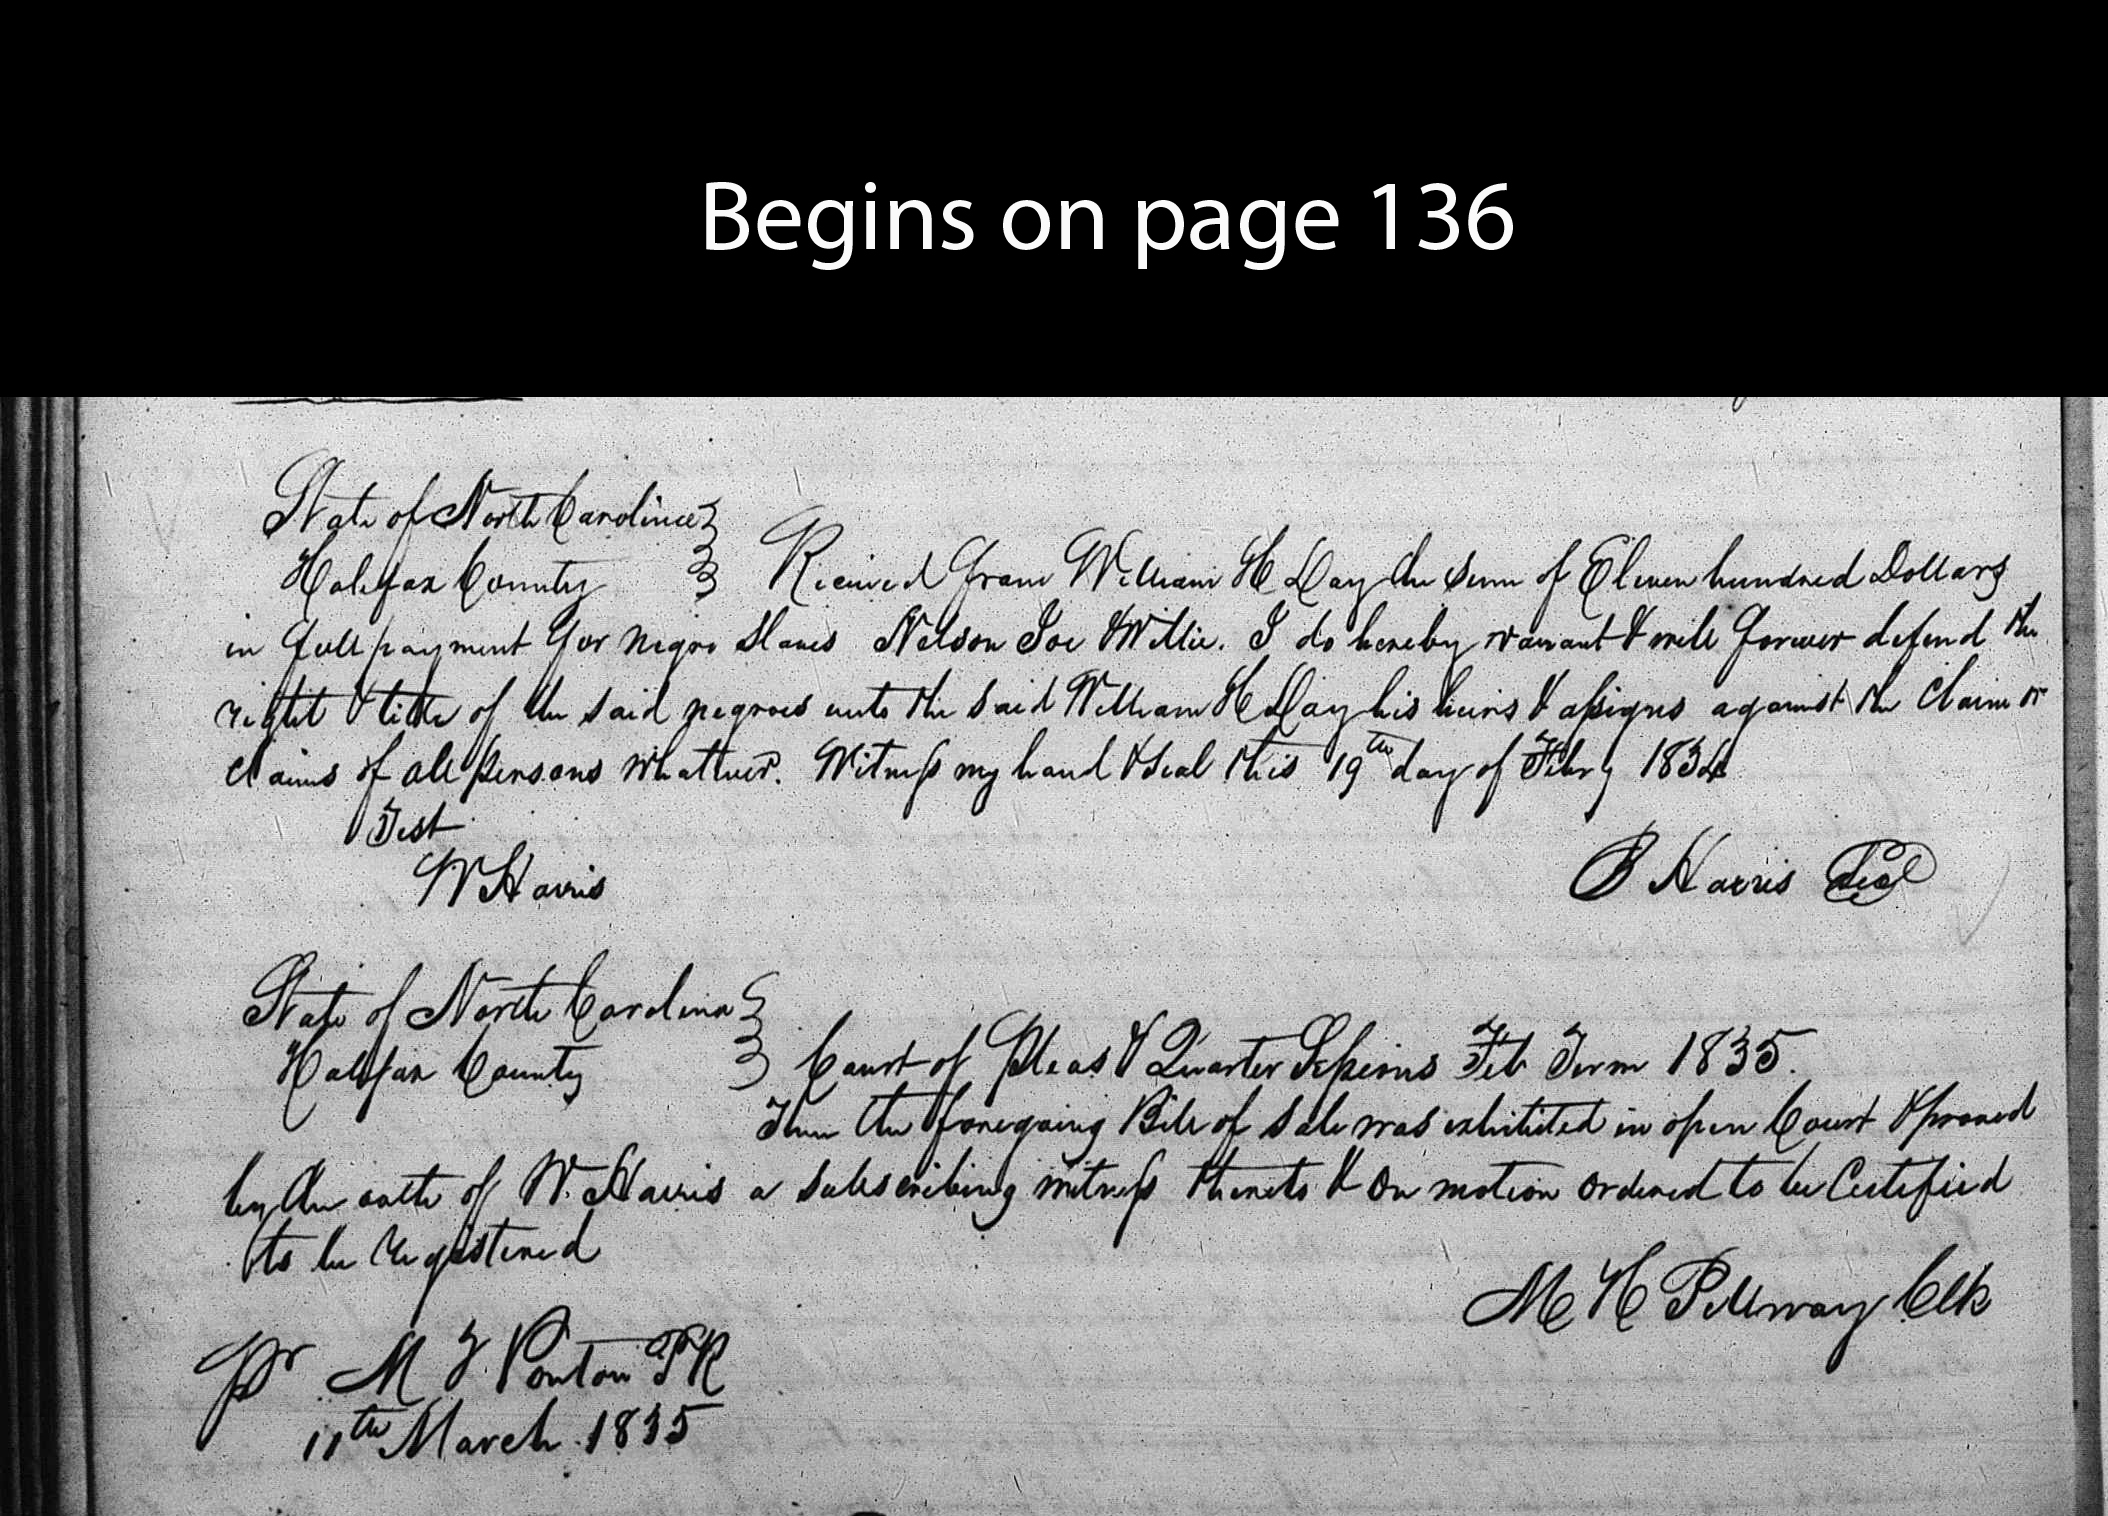 Begins on page 136
State of North Carolina
Halifax County Received from William H Day the sum of Eleven hundred Dollars
in full payment for negro slaves Nelson Joe & Willie. I do hereby warrant & will forever defend the
right & title of the said negroes unto the said William H Day his heirs & assigns against the claim or
claims of all persons whatever. Witness my hand & seal this 19th day of Febry 1834
Test
W Harris
B Harris Seal
State of North Carolina
Halifax County Court of Pleas & Quarter Sessions Feb Term 1835.
Then the foregoing Bill of sale was exhibited in open Court & proved
by the oath of W. Harris a subscribing witness thereto & on motion ordered to be Certified
to be registered
M H Pettway Clk
Pr M F. Ponton PR
11th March 1835